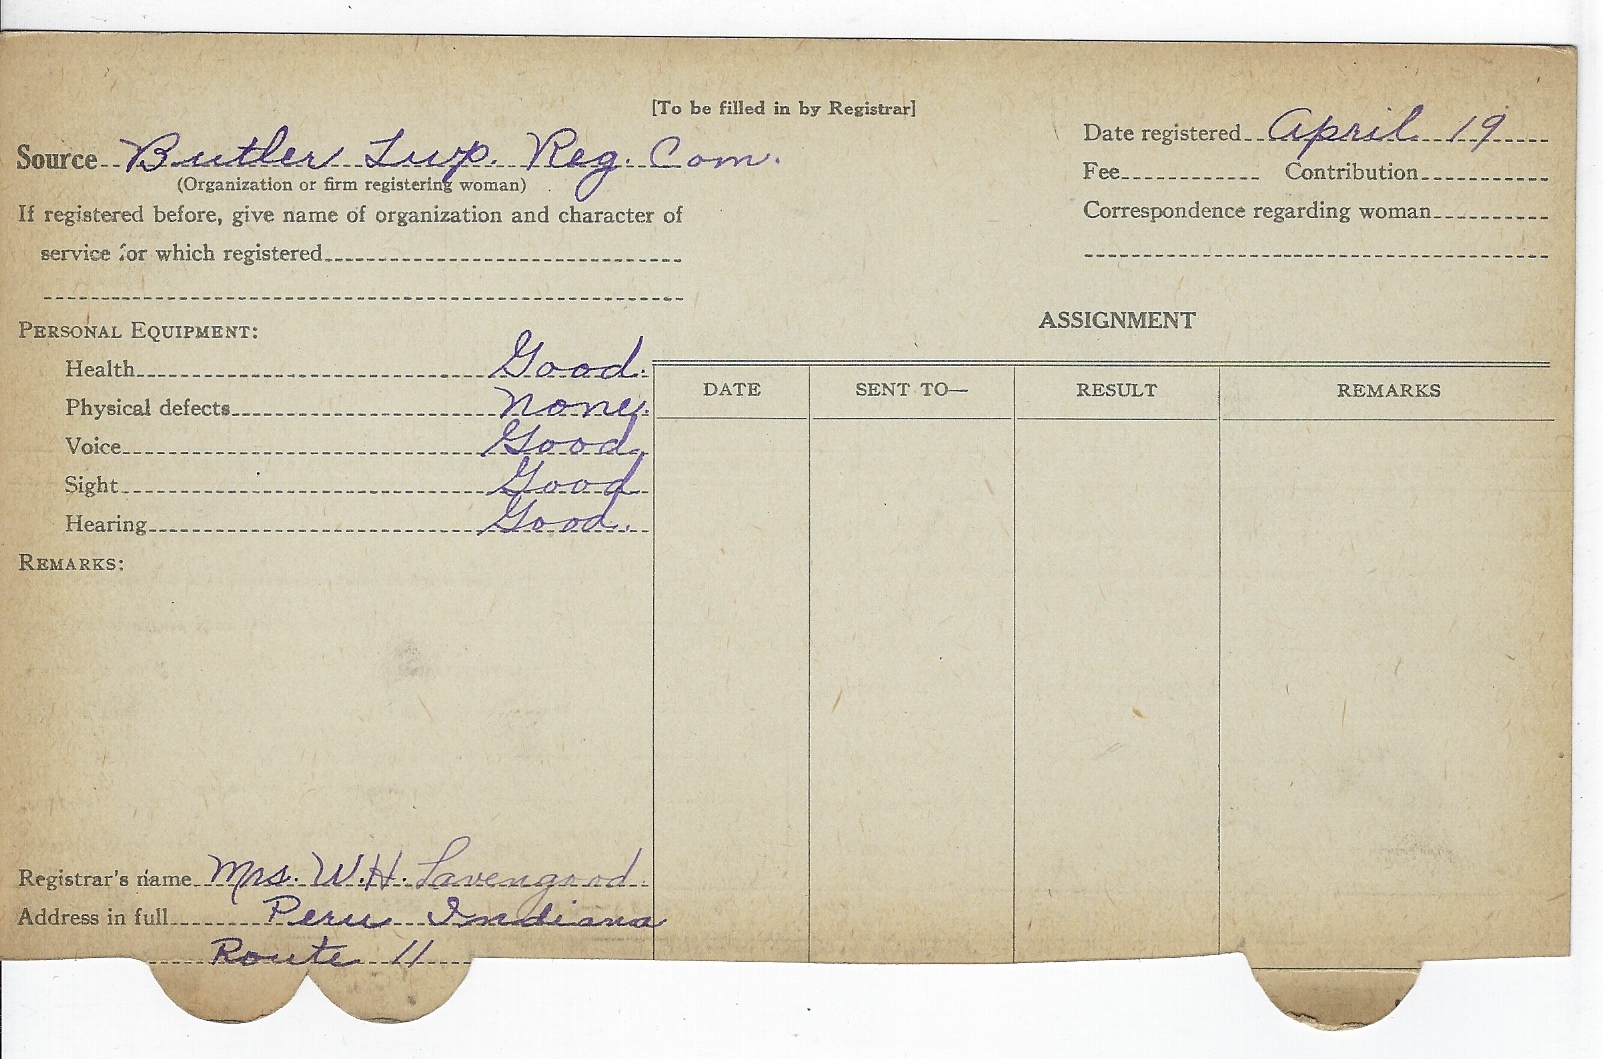 [To be filled in by Registrar]
Source Butler Twp. Reg. Com.
(Organization or firm registering woman)
If registered before, give name of organization and character of
service for which registered
Date registered April 19
Fee Contribution
Correspondence regarding woman
PERSONAL EQUIPMENT:
Health Good.
Physical defects none.
Voice Good.
Sight Good
Hearing Good.
REMARKS:
ASSIGNMENT
DATE SENT TO— RESULT REMARKS
Registrar's name Mrs. W.H. Lavengood.
Address in full Peru Indiana
Route 11